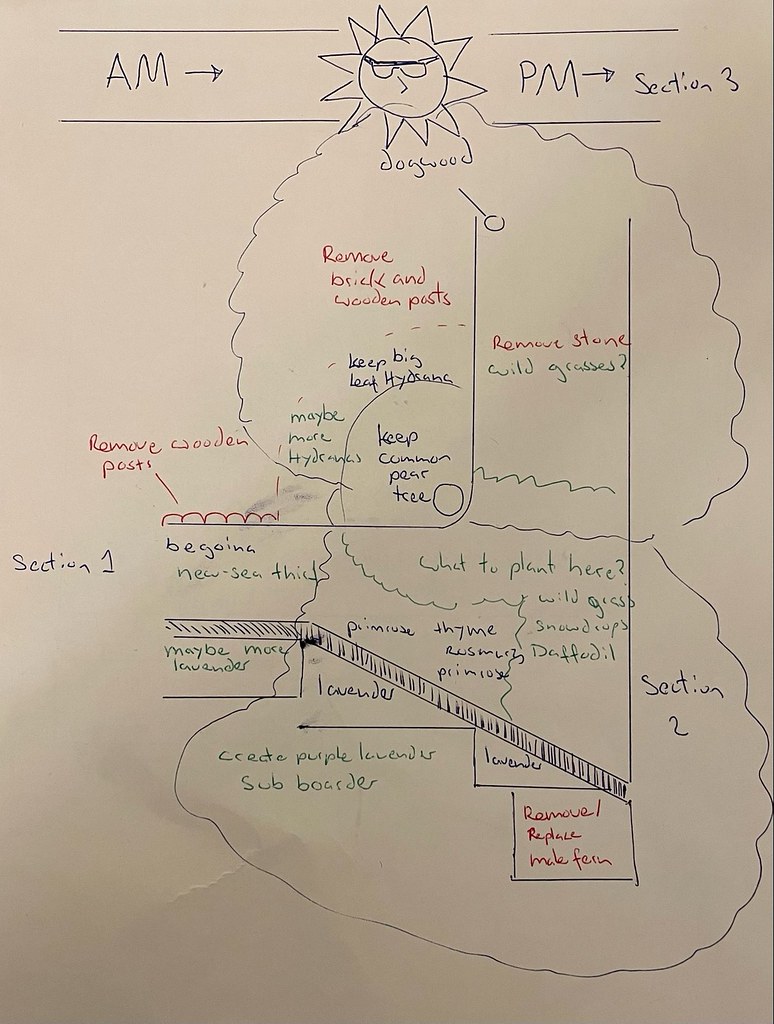 AM →
PM →
Section 3
dogwood
Remove
brick and
wooden posts
Remove stone
wild grasses?
keep big
leaf Hydrana
maybe
more
Hydranas
keep
common
pear
tree
Remove wooden
posts
Section 1
begoina
new-sea thief
what to plant here?
wild grass
snowdrops
Daffodil
primrose thyme
Rosmury
primrose
maybe more
lavender
lavender
Section
2
create purple lavender
Sub boarder
lavender
Remove/
Replace
male fern